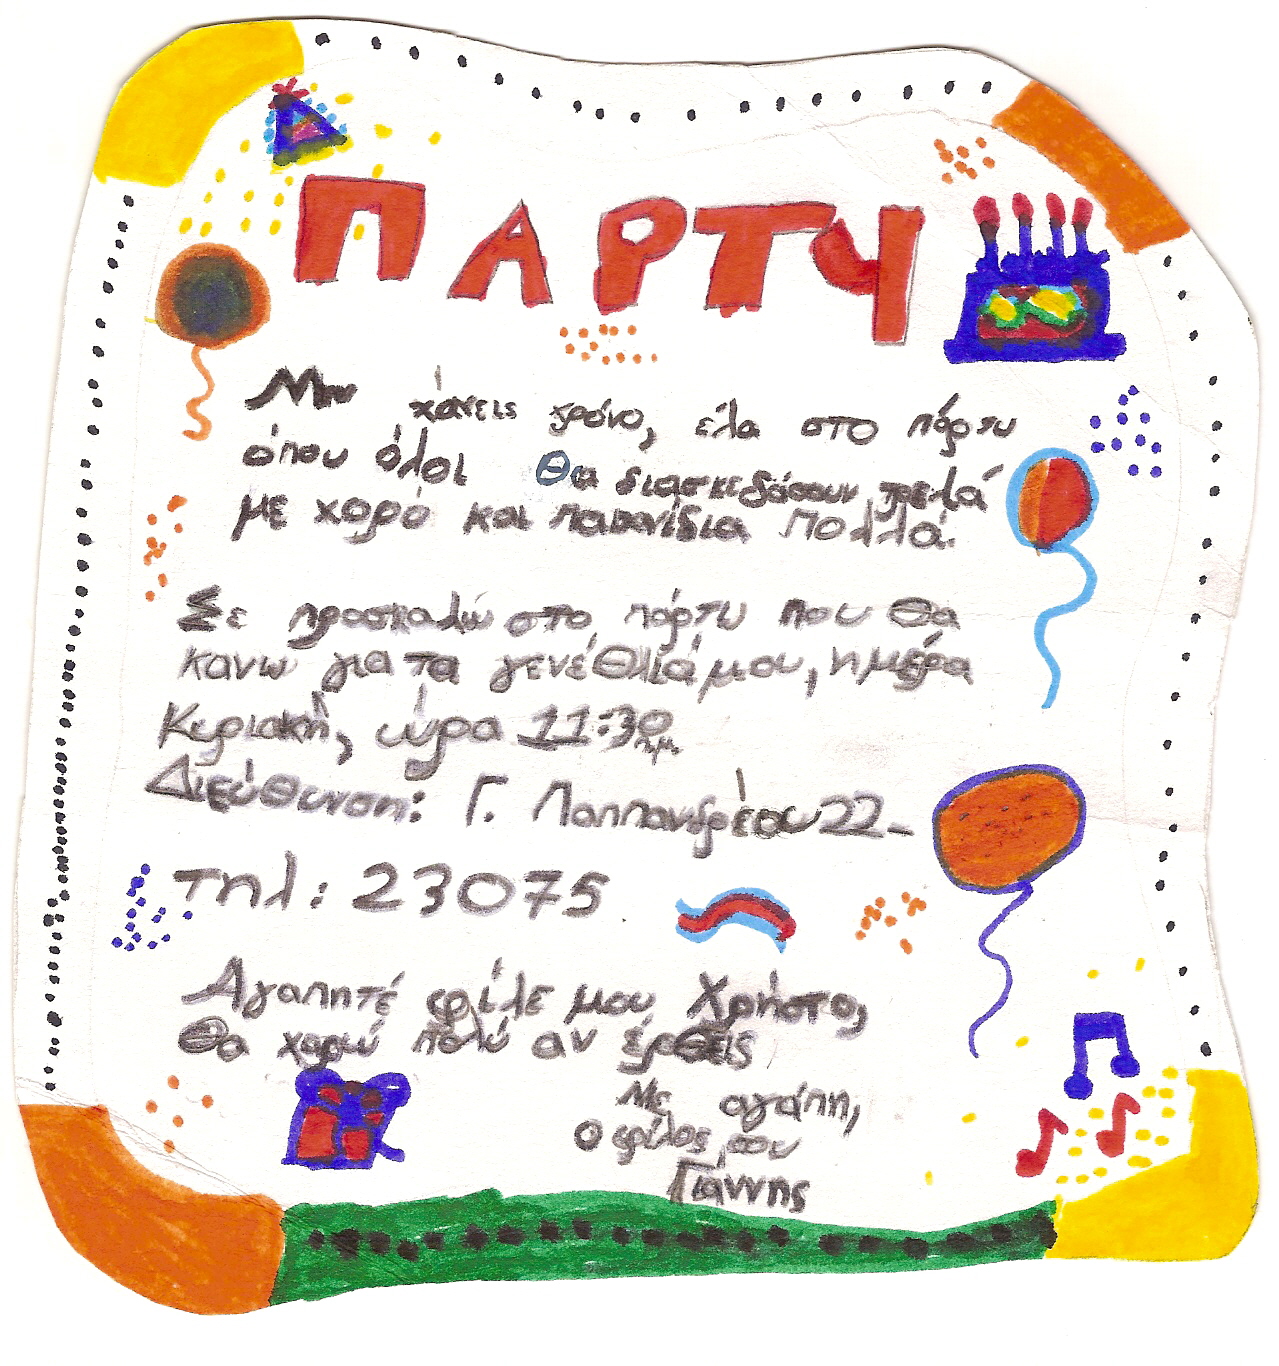 ΠΑΡΤΥ
Μην χάνεις χρόνο, έλα στο πάρτυ
όπου όλοι Θα διασκεδάσουν τρελά
με χορό και παιχνίδια πολλά.
Σε προσκαλώ στο πάρτυ που Θα
κανω για τα γενέθλιά μου, ημέρα
Κυριακή, ώρα 11:30 π.μ.
Διεύθυνση: Γ. Παππανδρέου 22-
τηλ: 23075
Αγαπητέ φίλε μου Χρήστο,
Θα χαρώ πολύ αν έρθεις
Με αγάπη,
Ο φίλος σου
Γιάννης